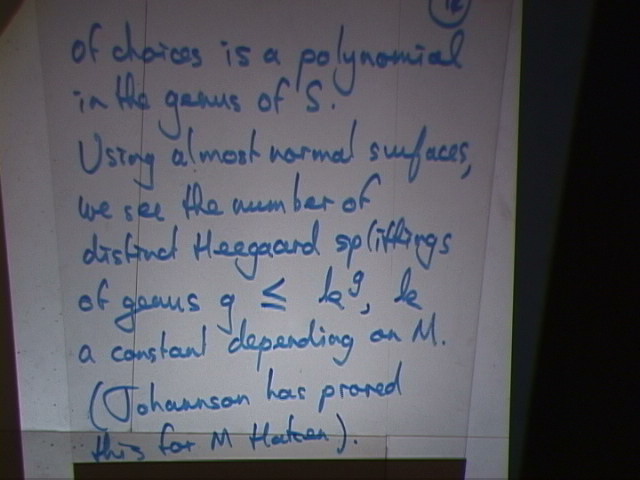 of choices is a polynomial
in the genus of S.
Using almost normal surfaces,
we see the number of
distinct Heegaard splittings
of genus g ≤ k^g, k
a constant depending on M.
(Johannson has proved
this for M Haken).